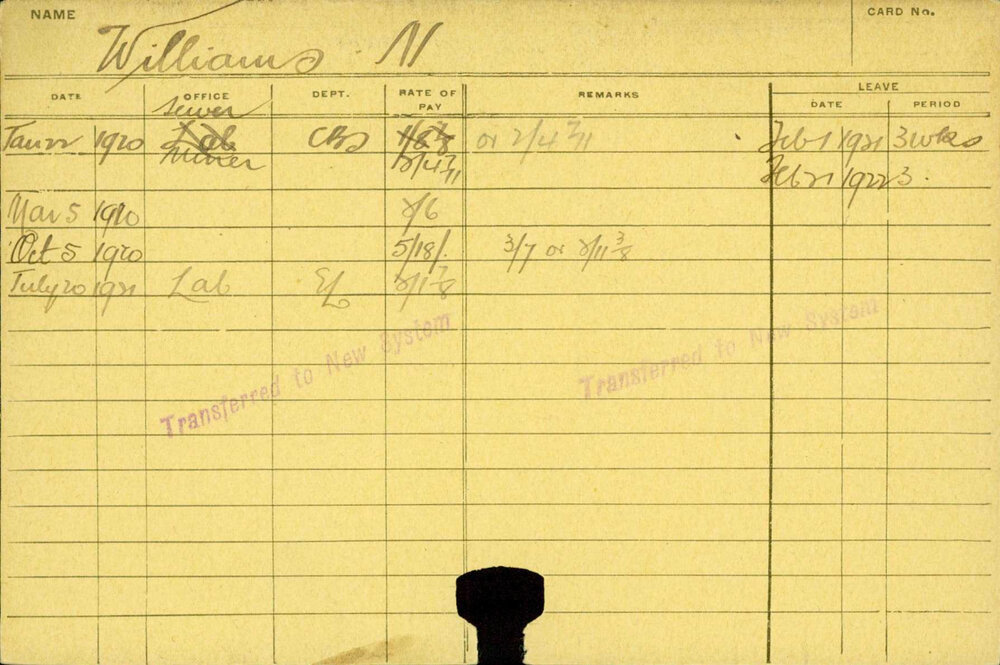 NAME
CARD No.
Williams N
DATE OFFICE DEPT. RATE OF PAY REMARKS LEAVE DATE PERIOD
Sewer
Jan 22 1920 Lab 1/8 7/8 or 2/4 7/11 Feb 1 1921 3 wks
Miner 2/4 7/11 Feb 21 1922 3.
Mar 5 1920 2/6
Oct 5 1920 5/18/. 3/7 or 2/11 3/8
July 20 1921 Lab EL 2/1 7/8
Transferred to New System
Transferred to New System